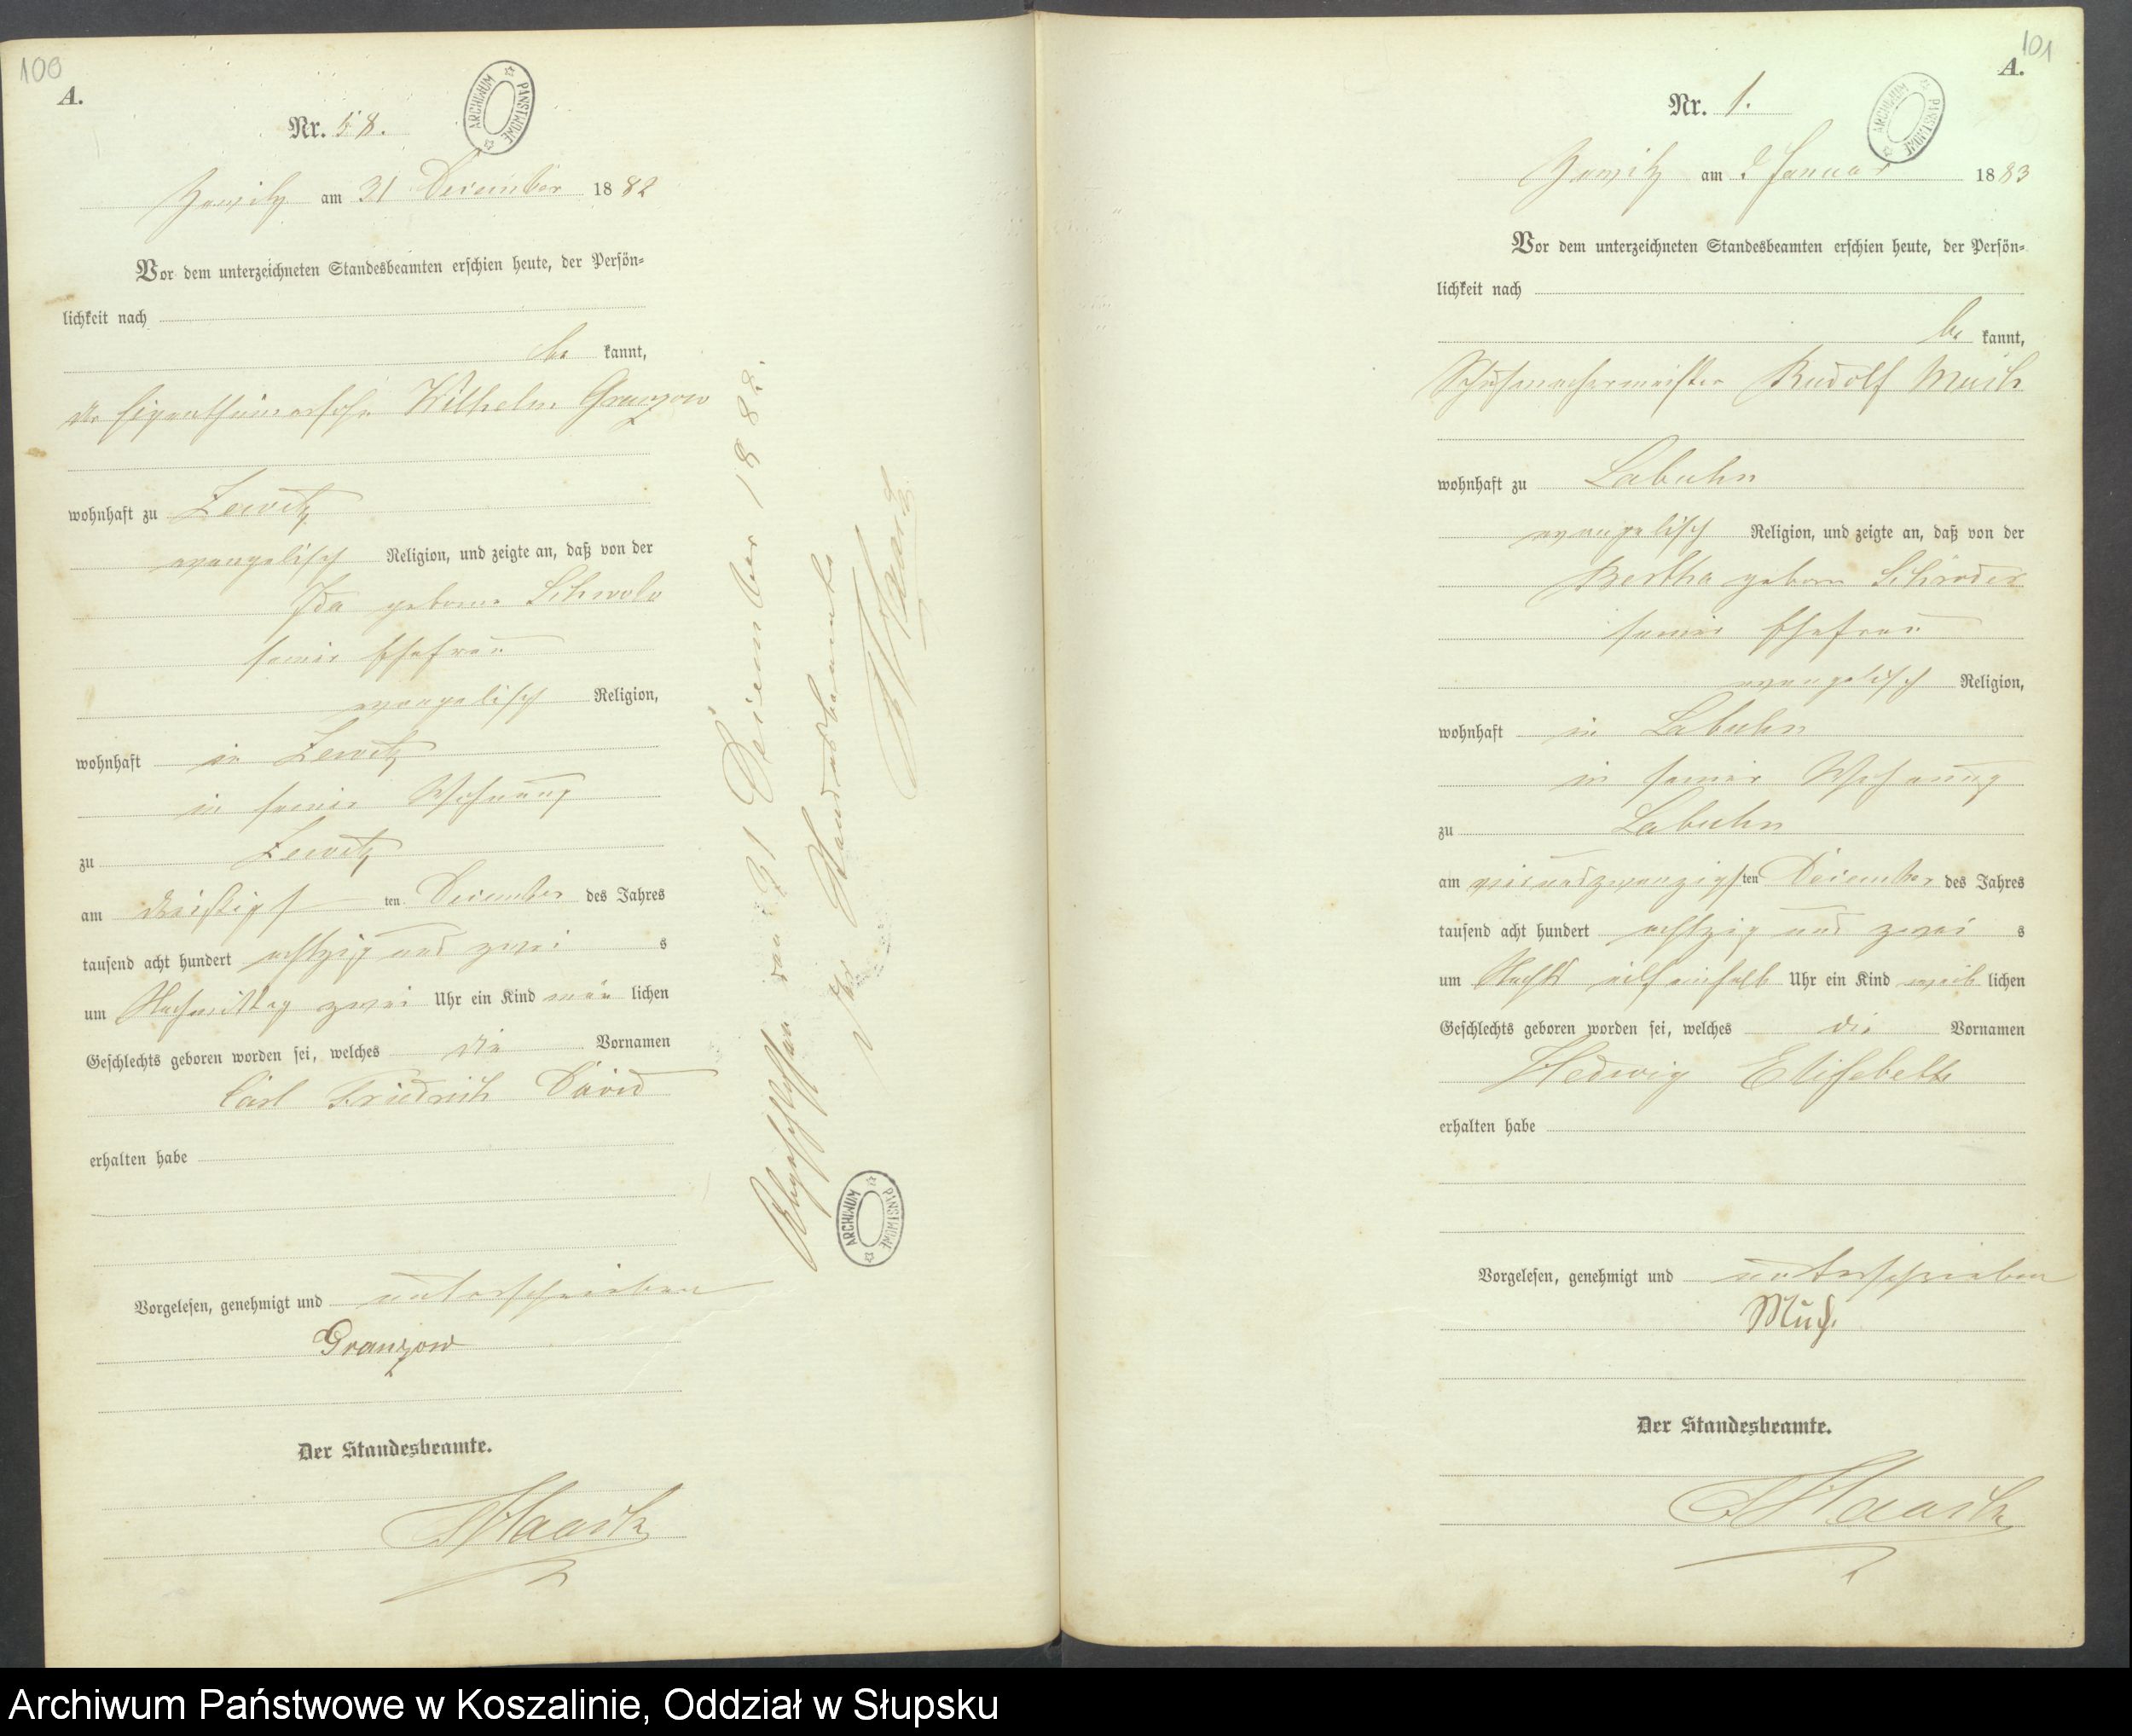 100
A.
ARCHIWUM PAŃSTWOWE
Nr. 58.
am 31 December 1882
Vor dem unterzeichneten Standesbeamten erschien heute, der Persön-
lichkeit nach
be kannt,
der Eigenthümersohn Wilhelm Granzow
wohnhaft zu Zewitz
evangelisch Religion, und zeigte an, daß von der
Ida geborne
seiner Ehefrau
evangelisch Religion,
wohnhaft in Zewitz
in seiner Wohnung
zu Zewitz
am dreißigst ten December des Jahres
tausend acht hundert achtzig und zwei s
um Nachmittag zwei Uhr ein Kind män lichen
Geschlechts geboren worden sei, welches die Vornamen
Carl Friedrich David
erhalten habe
Vorgelesen, genehmigt und unterschrieben
Granzow
Der Standesbeamte.
Abgeschlossen den 31 December 1882.
Der Standesbeamte
ARCHIWUM PAŃSTWOWE
101
A.
ARCHIWUM PAŃSTWOWE
Nr. 1.
am 2 Januar 1883
Vor dem unterzeichneten Standesbeamten erschien heute, der Persön-
lichkeit nach
be kannt,
Schuhmachermeister Rudolf Much
wohnhaft zu Labuhn
evangelisch Religion, und zeigte an, daß von der
Bertha geborne Schröder
seiner Ehefrau
evangelisch Religion,
wohnhaft in Labuhn
in seiner Wohnung
zu Labuhn
am vierundzwanzigsten December des Jahres
tausend acht hundert achtzig und zwei s
um Nachts Uhr ein Kind weib lichen
Geschlechts geboren worden sei, welches die Vornamen
Hedwig Elisabeth
erhalten habe
Vorgelesen, genehmigt und unterschrieben
Much.
Der Standesbeamte.
Archiwum Państwowe w Koszalinie, Oddział w Słupsku